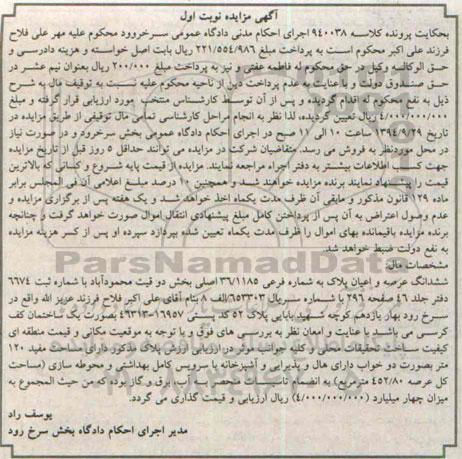 آگهی مزایده نوبت اول
بحکایت پرونده کلاسه ۹۴۰۰۳۸ اجرای احکام مدنی دادگاه عمومی سرخرود محکوم علیه مهر علی فلاح
فرزند علی اکبر محکوم است به پرداخت مبلغ ۲۲۱/۵۵۴/۹۸۶ ریال بابت اصل خواسته و هزینه دادرسی و
حق الوکاله وکیل در حق محکوم له فاطمه عفتی و نیز به پرداخت مبلغ ۲۰۰/۰۰۰ ریال بعنوان نیم عشر در
حق صندوق دولت و با عنایت به عدم پرداخت دین از ناحیه محکوم علیه نسبت به توقیف مال به شرح
ذیل به نفع محکوم له اقدام گردیده و پس از آن توسط کارشناس منتخب مورد ارزیابی قرار گرفته و مبلغ
۴/۰۰۰/۰۰۰/۰۰۰ ریال تعیین گردیده، لذا نظر به انجام مراحل کارشناسی تمامی مال توقیفی از طریق مزایده در
تاریخ ۱۳۹۴/۹/۲۹ ساعت ۱۰ الی ۱۱ صبح در اجرای احکام دادگاه عمومی بخش سرخرود و در صورت نیاز
در محل موردنظر به فروش می رسد. متقاضیان شرکت در مزایده می توانند حداقل ۵ روز قبل از تاریخ مزایده
جهت کسب اطلاعات بیشتر به دفتر اجراء مراجعه نمایند. مزایده از قیمت پایه شروع و کسانی که بالاترین
قیمت را پیشنهاد نمایند برنده مزایده خواهند شد و همچنین ۱۰ درصد مبلغ اعلامی آن فی المجلس برابر
ماده ۱۲۹ قانون مذکور و مابقی آن ظرف مدت یکماه اخذ خواهد شد و یک هفته پس از برگزاری مزایده و
عدم وصول اعتراض به آن پس از پرداختن کامل مبلغ پیشنهادی انتقال اموال صورت خواهد گرفت و چنانچه
برنده مزایده باقیمانده بهای اموال را ظرف مدت یکماه تعیین شده نپردازد سپرده او پس از کسر هزینه مزایده
به نفع دولت ضبط خواهد شد.
مشخصات مال:
ششدانگ عرصه و اعیان پلاک به شماره فرعی ۳۶/۱۱۸۵ اصلی بخش دو ثبت محمودآباد با شماره ثبت ۶۶۷۴
دفتر جلد ۴۶ صفحه ۲۹۶ با شماره سریال ۶۵۳۳۰۳/الف ۸ بنام آقای علی اکبر فلاح فرزند عزیز الله واقع در
سرخ رود بهار یازدهم کوچه شهید بابایی پلاک ۵۲ کد پستی ۱۶۹۵۷-۴۶۳۱۳ بصورت یک ساختمان کف
کرسی می باشد با عنایت و امعان نظر به بررسی های فوق و با توجه به موقعیت مکانی و قیمت منطقه ای
کیفیت ساخت تحقیقات محلی و کلیه جوانب موثر در ارزیابی ارزش پلاک مذکور دارای مساحت مفید ۱۲۰
متر بصورت دو خواب دارای هال و پذیرایی و آشپزخانه با سرویس کامل بهداشتی و محوطه سازی (مساحت
کل عرصه ۴۵۲/۸۰ مترمربع) به انضمام تاسیسات منحصر به آب برق و گاز بوده که من حیث المجموع به
میزان چهار میلیارد (۴/۰۰۰/۰۰۰/۰۰۰) ریال ارزیابی و قیمت گذاری می گردد.
یوسف راد
مدیر اجرای احکام دادگاه بخش سرخ رود
ParsNamadData